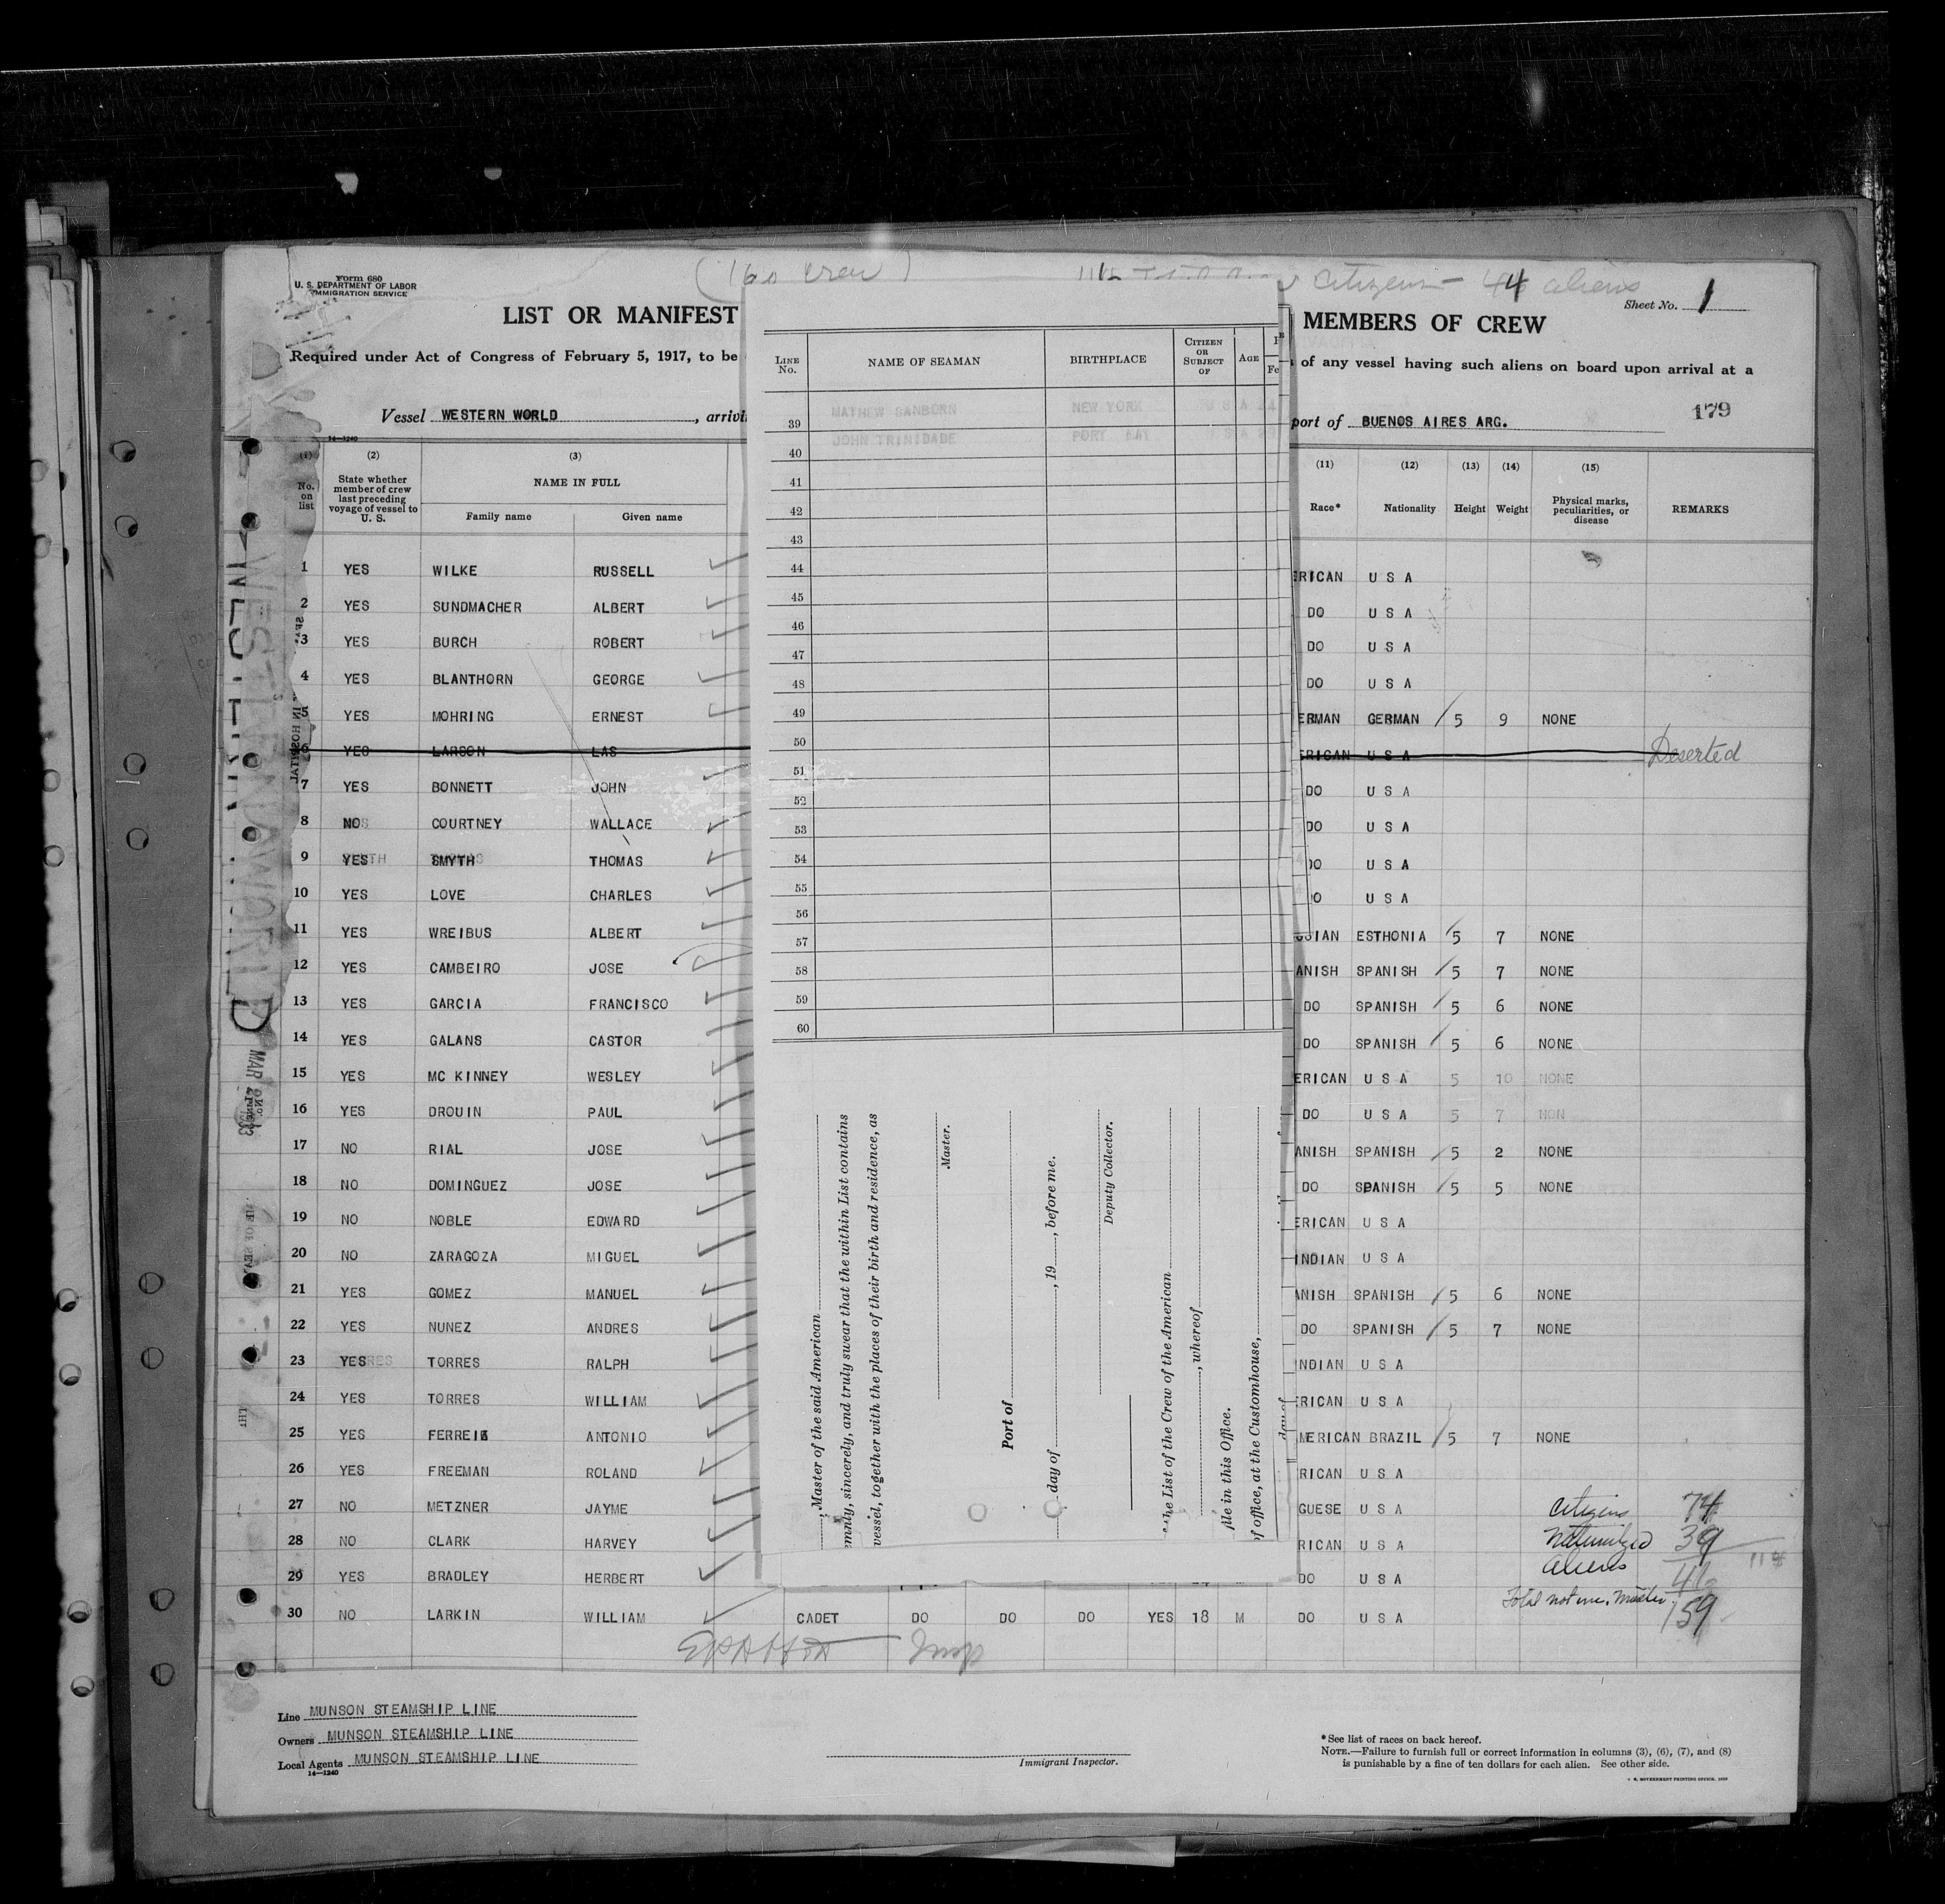 (160 crew) citizens - 44 aliens
Form 680
U. S. DEPARTMENT OF LABOR
IMMIGRATION SERVICE
Sheet No. 1
LIST OR MANIFEST MEMBERS OF CREW
Required under Act of Congress of February 5, 1917, to be of any vessel having such aliens on board upon arrival at a
Vessel WESTERN WORLD port of BUENOS AIRES ARG. 179
14—1240
(1) (2) (3) (11) (12) (13) (14) (15)
No. on list State whether member of crew last preceding voyage of vessel to U. S. NAME IN FULL Family name Given name Race* Nationality Height Weight Physical marks, peculiarities, or disease REMARKS
1 YES WILKE RUSSELL ERICAN U S A
2 YES SUNDMACHER ALBERT DO U S A
3 YES BURCH ROBERT DO U S A
4 YES BLANTHORN GEORGE DO U S A
5 YES MOHRING ERNEST ERMAN GERMAN 5 9 NONE
6 YES LARSON LAS ERICAN U S A Deserted
7 YES BONNETT JOHN DO U S A
8 NO COURTNEY WALLACE DO U S A
9 YES SMYTH THOMAS DO U S A
10 YES LOVE CHARLES DO U S A
11 YES WREIBUS ALBERT SIAN ESTHONIA 5 7 NONE
12 YES CAMBEIRO JOSE ANISH SPANISH 5 7 NONE
13 YES GARCIA FRANCISCO DO SPANISH 5 6 NONE
14 YES GALANS CASTOR DO SPANISH 5 6 NONE
15 YES MC KINNEY WESLEY ERICAN U S A 5 10 NONE
16 YES DROUIN PAUL DO U S A 5 7 NON
17 NO RIAL JOSE ANISH SPANISH 5 2 NONE
18 NO DOMINGUEZ JOSE DO SPANISH 5 5 NONE
19 NO NOBLE EDWARD ERICAN U S A
20 NO ZARAGOZA MIGUEL INDIAN U S A
21 YES GOMEZ MANUEL ANISH SPANISH 5 6 NONE
22 YES NUNEZ ANDRES DO SPANISH 5 7 NONE
23 YES TORRES RALPH NDIAN U S A
24 YES TORRES WILLIAM ERICAN U S A
25 YES ANTONIO MERICAN BRAZIL 5 7 NONE
26 YES FREEMAN ROLAND RICAN U S A
27 NO METZNER JAYME GUESE U S A
28 NO CLARK HARVEY RICAN U S A
29 YES BRADLEY HERBERT DO U S A
30 NO LARKIN WILLIAM CADET DO DO DO YES 18 M DO U S A
citizens 74
Naturalized 39
aliens 46
Total not inc. Master 159
LINE No. NAME OF SEAMAN BIRTHPLACE CITIZEN OR SUBJECT OF AGE
39 MATHEW SANBORN NEW YORK U S A
40 JOHN TRINIDADE PORT U S A
41
42
43
44
45
46
47
48
49
50
51
52
53
54
55
56
57
58
59
60
, Master of the said American
emnly, sincerely, and truly swear that the within List contains
vessel, together with the places of their birth and residence, as
Master.
Port of
day of , 19 , before me.
Deputy Collector.
the List of the Crew of the American
, whereof
file in this Office.
of office, at the Customhouse,
day of
WESTERN WORLD
Line MUNSON STEAMSHIP LINE
Owners MUNSON STEAMSHIP LINE
Local Agents MUNSON STEAMSHIP LINE
14—1240
Immigrant Inspector.
*See list of races on back hereof.
NOTE.—Failure to furnish full or correct information in columns (3), (6), (7), and (8)
is punishable by a fine of ten dollars for each alien. See other side.